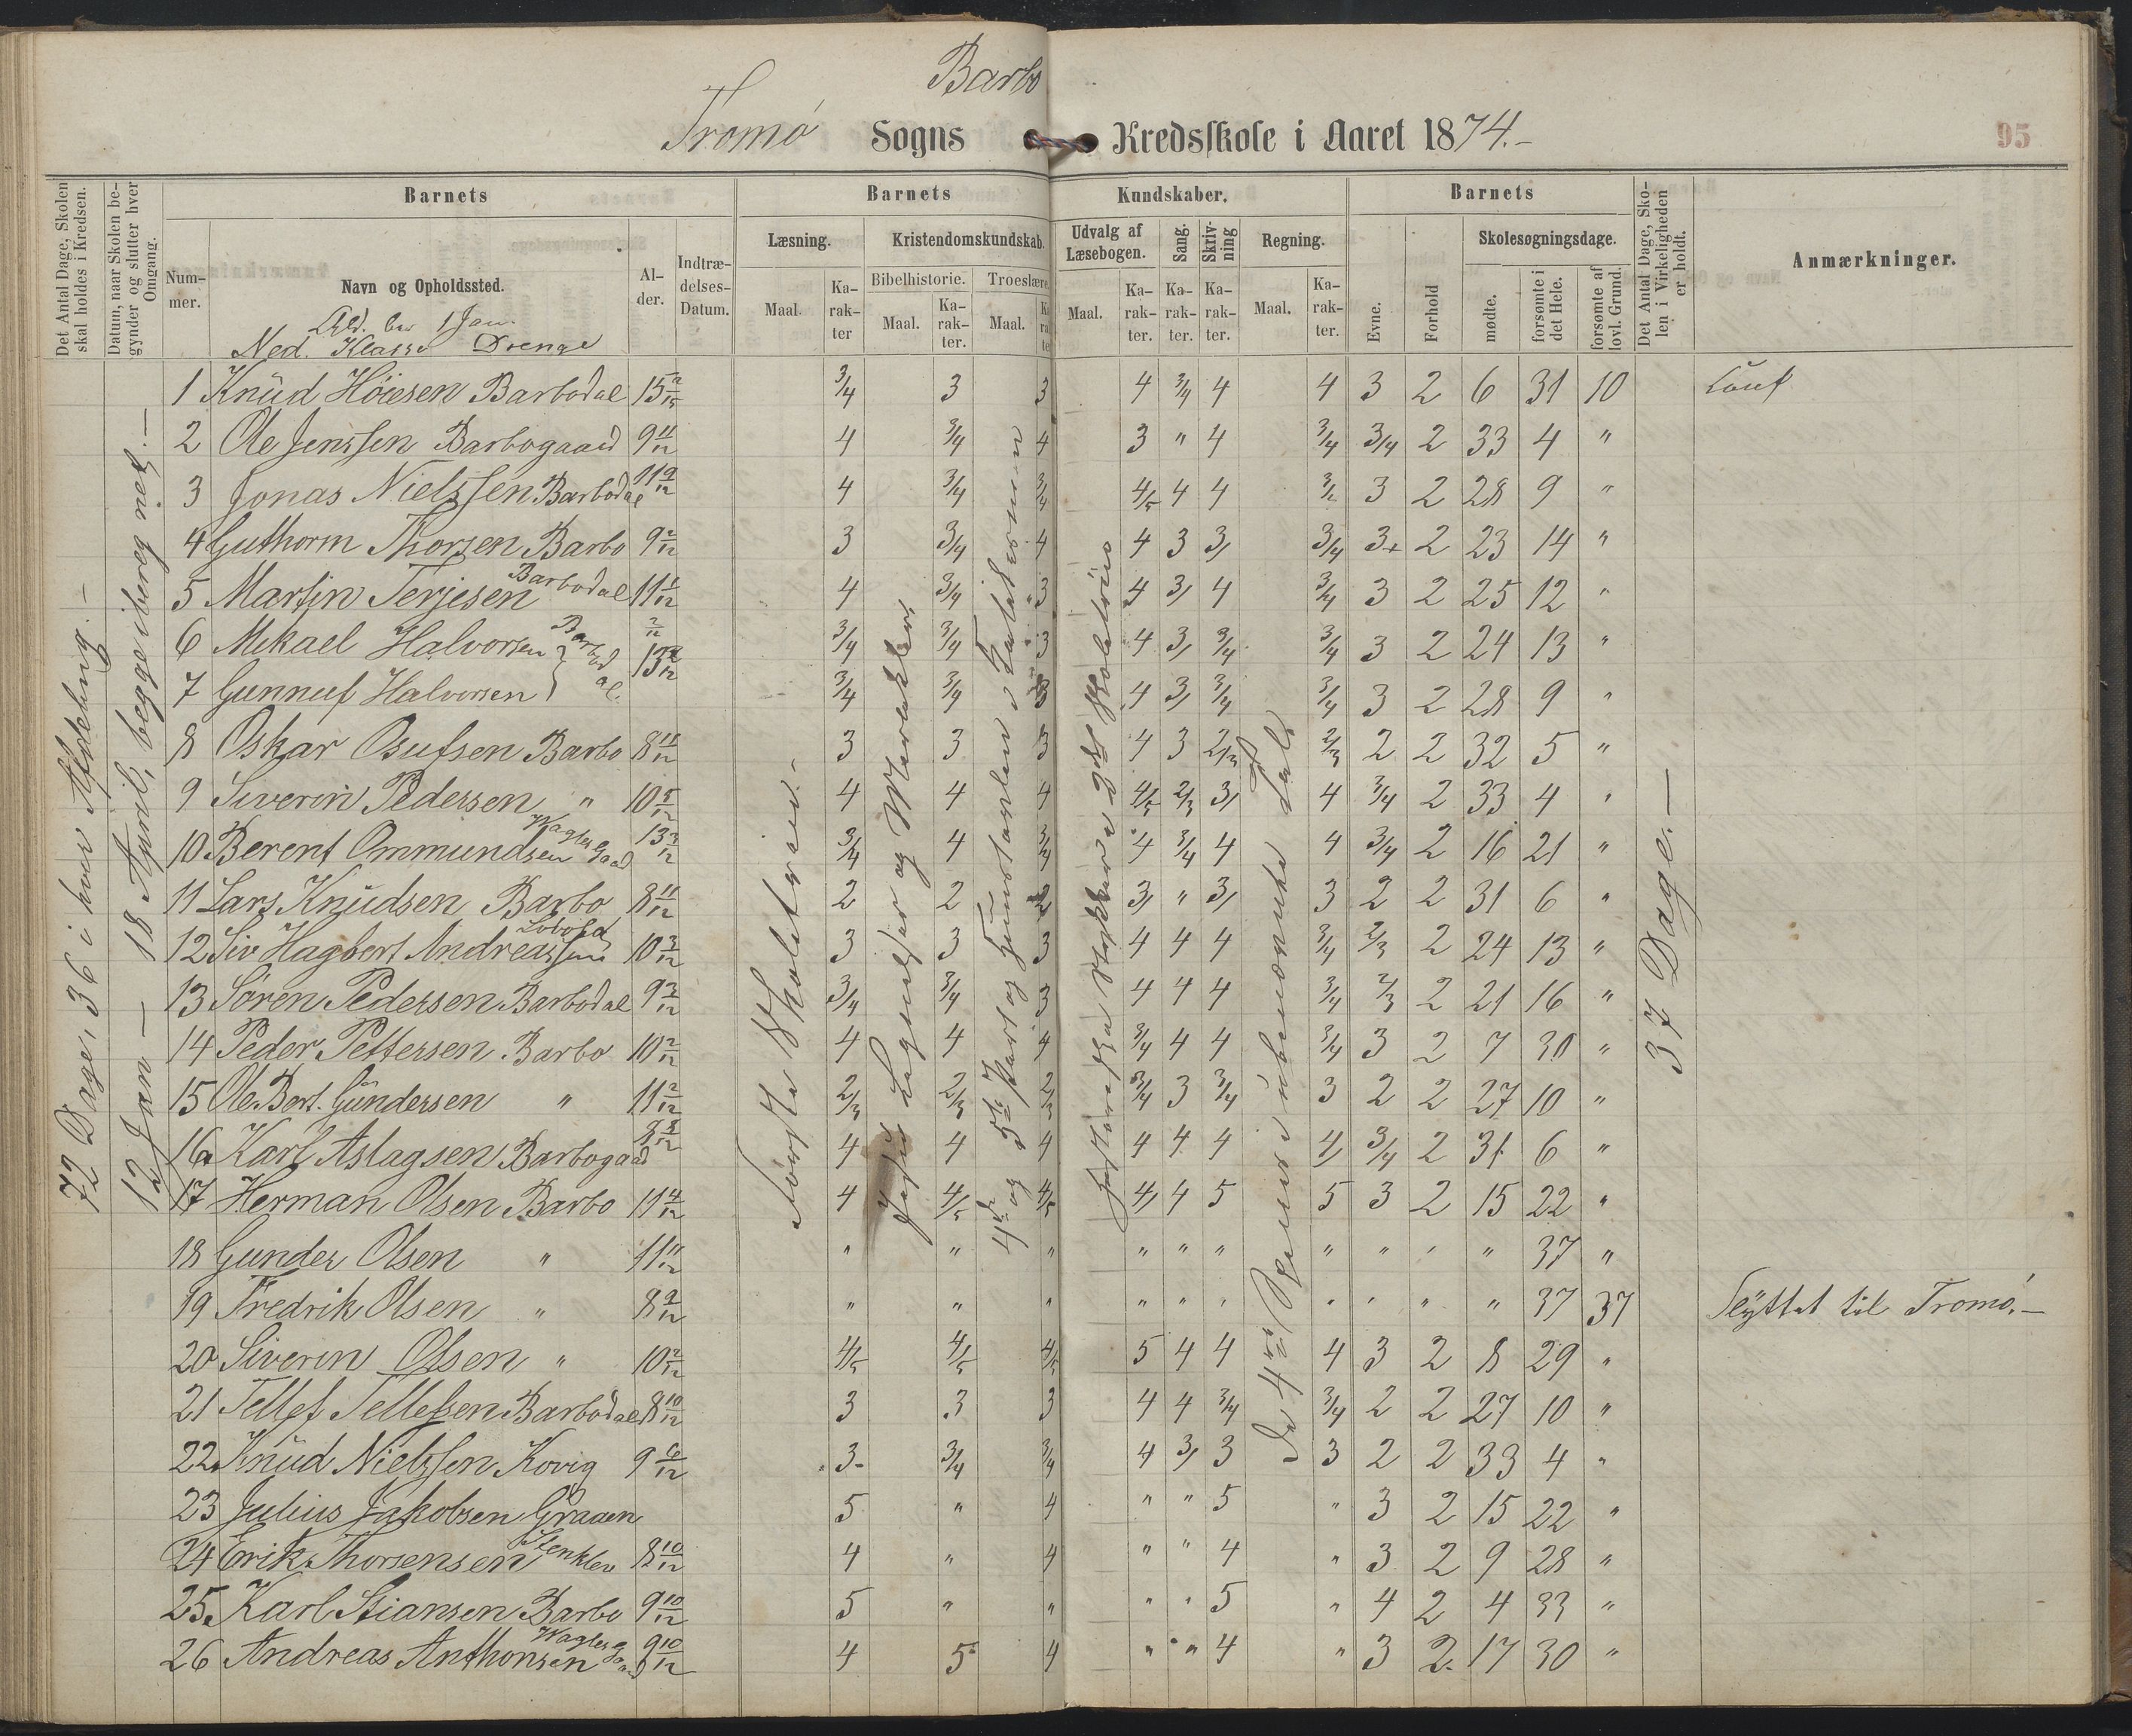 Barbo
Tromø Sogns Kredsskole i Aaret 1874.-
95
Det Antal Dage, Skolen skal holdes i Kredsen.
Datum, naar Skolen begynder og slutter hver Omgang.
Barnets
Nummer.
Navn og Opholdssted.
Alder.
Indtrædelses-Datum.
Barnets Kundskaber.
Læsning.
Maal.
Karakter
Kristendomskundskab.
Bibelhistorie.
Maal.
Karakter.
Troeslære
Maal.
Udvalg af Læsebogen.
Maal.
Karakter.
Sang.
Karakter.
Skrivning
Karakter.
Regning.
Maal.
Karakter.
Barnets
Evne.
Forhold
Skolesøgningsdage.
mødte.
forsømte i det Hele.
forsømte af lovl. Grund.
Det Antal Dage, Skolen i Virkeligheden er holdt.
Anmærkninger.
Ald. ber 1 Jan.
Ned. Klasse Drenge
72 Dage, 36 i hver Afdeling.-
12 Jan - 18 April, begge iberegnet.-
37 Dage.-
1 Knud Høiesen Barbodal 3/4 3 3 4 3/4 4 4 3 2 6 31 10
2 Ole Jenssen Barbogaard 9 11/12 4 3/4 4 3 " 4 3/4 3/4 2 33 4 "
3 Jonas Nielssen Barbodal 11 9/12 4 3/4 3/4 4/5 4 4 3 2 28 9 "
4 Guthorm Thorsen Barbo 9 2/12 3 3/4 4 4 3 3 3/4 3+ 2 23 14 "
5 Martin Terjesen Barbodal 4 3/4 3 4 3 4 3/4 3 2 25 12 "
6 Mikael Halvorsen Barbodal 3/4 3/4 3 4 3 3/4 3/4 3 2 24 13 "
7 Gunnuf Halvorsen 3/4 3/4 3 4 3 3/4 3/4 3 2 28 9 "
8 Oskar Osufsen Barbo 8 11/12 3 3 3 4 3 2/3 2/3 2 2 32 5 "
9 Siverin Pedersen " 10 5/12 4 4 4 4/5 2/3 3 4 3/4 2 33 4 "
10 Berent Ommundsen 13 3/12 3/4 4 3/4 4 3/4 4 4 3/4 2 16 21 "
11 Lars Knudsen Barbo 8 11/12 2 2 2 3 " 3 3 2 2 31 6 "
12 Siv Hagbert Andreassen 10 3/12 3 3 3 4 4 4 3/4 2/3 2 24 13 "
13 Søren Pedersen Barbodal 9 3/12 3/4 3/4 3 4 4 4 3/4 2/3 2 21 16 "
14 Peder Pettersen Barbo 10 2/12 4 4 4 3/4 4 4 3/4 3 2 7 30 "
15 Ole Bert. Gundersen " 11 2/12 2/3 2/3 2/3 3/4 3 3/4 3 2 2 27 10 "
16 Karl Aslagsen Barbogaard 4 4 4 4 4 4 4 3/4 2 31 6 "
17 Herman Olsen Barbo 11 4/12 4 4/5 4/5 4 4 5 5 3 2 15 22 "
18 Gunder Olsen " 11 11/12 " " " " " " " " " " 37 "
19 Fredrik Olsen " 8 9/12 " " " " " " " " " " 37 37 Flyttet til Tromø.-
20 Siverin Olsen " 10 2/12 4/5 4/5 4/5 5 4 4 4 3 2 8 29 "
21 Tellef Tellefsen Barbodal 8 10/12 3 3 3 4 4 3/4 3/4 2 2 27 10 "
22 Knud Nielssen Kovig 9 6/12 3 3/4 3/4 4 3 3 3 2 2 33 4 "
23 Julius Jakobsen Graaen 5 " 4 " " 5 " 3 2 15 22 "
24 Erik Thorsensen Stenklev 8 10/12 4 " 4 " " 4 " 3 2 9 28 "
25 Karl Stiansen Barbo 9 10/12 5 " " " " 5 " 4 2 4 33 "
26 Andreas Anthonsen 9 10/12 4 5 4 " " 4 " 3 2 17 30 "